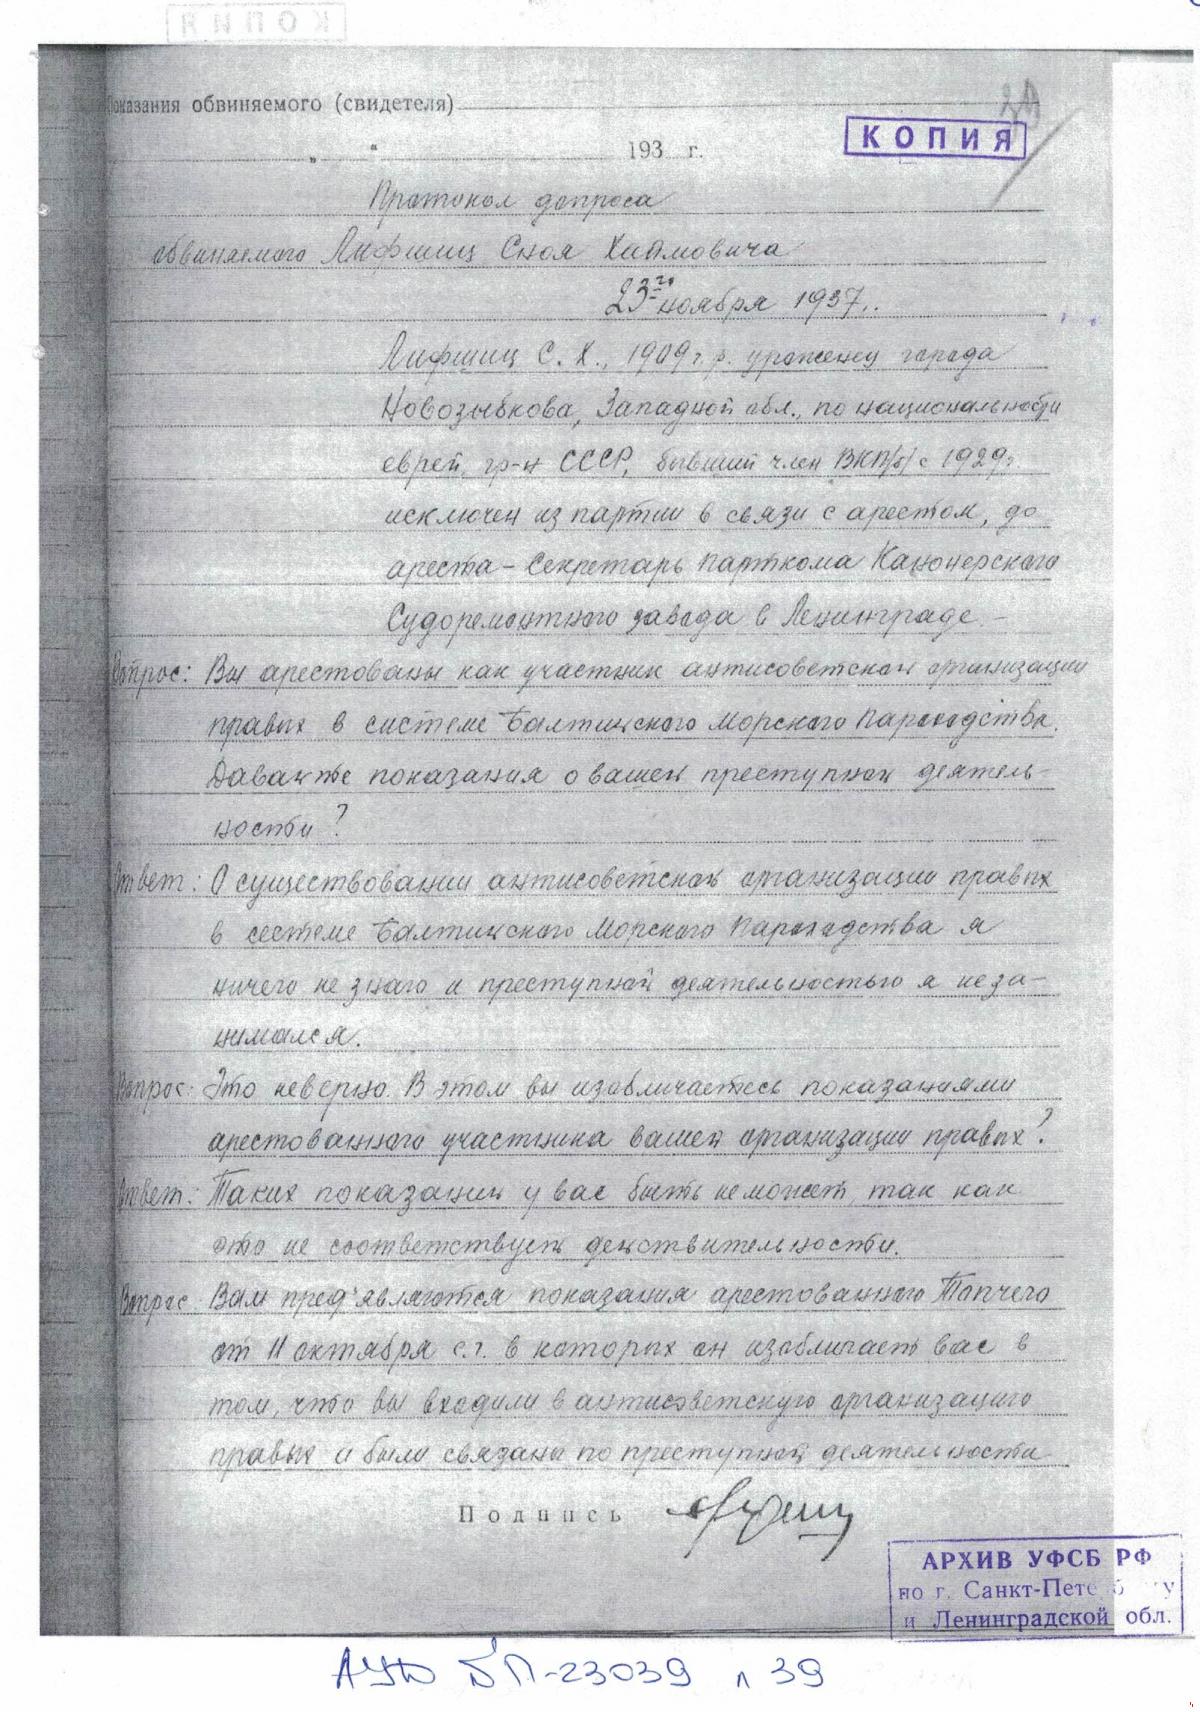 КОПИЯ
Показания обвиняемого (свидетеля)
39
КОПИЯ
„ “ 193 г.
Протокол допроса
обвиняемого Лифшиц Сноя Хаймовича
23го ноября 1937.
Лифшиц С. Х., 1909 г.р. уроженец города
Новозыбкова, Западной обл., по национальности
еврей, гр-н СССР, бывший член ВКП/б/ с 1929 г.
исключен из партии в связи с арестом, до
ареста – Секретарь парткома Канонерского
Судоремонтного завода в Ленинграде. –
Вопрос: Вы арестованы как участник антисоветской организации
правых в системе Балтийского Морского Пароходства.
Давайте показания о вашей преступной деятель-
ности?
Ответ: О существовании антисоветской организации правых
в системе Балтийского Морского Пароходства я
ничего не знаю и преступной деятельностью я не за-
нимался.
Вопрос: Это неверно. В этом вы изобличаетесь показаниями
арестованного участника вашей организации правых?
Ответ: Таких показаний у вас быть не может, так как
это не соответствует действительности.
Вопрос Вам пред'являются показания арестованного Топчего
от 11 октября с.г. в которых он изобличает вас в
том, что вы входили в антисоветскую организацию
правых и были связаны по преступной деятельности
Подпись
АРХИВ УФСБ РФ
по г. Санкт-Петербургу
и Ленинградской обл.
АУД № П-23039 л 39